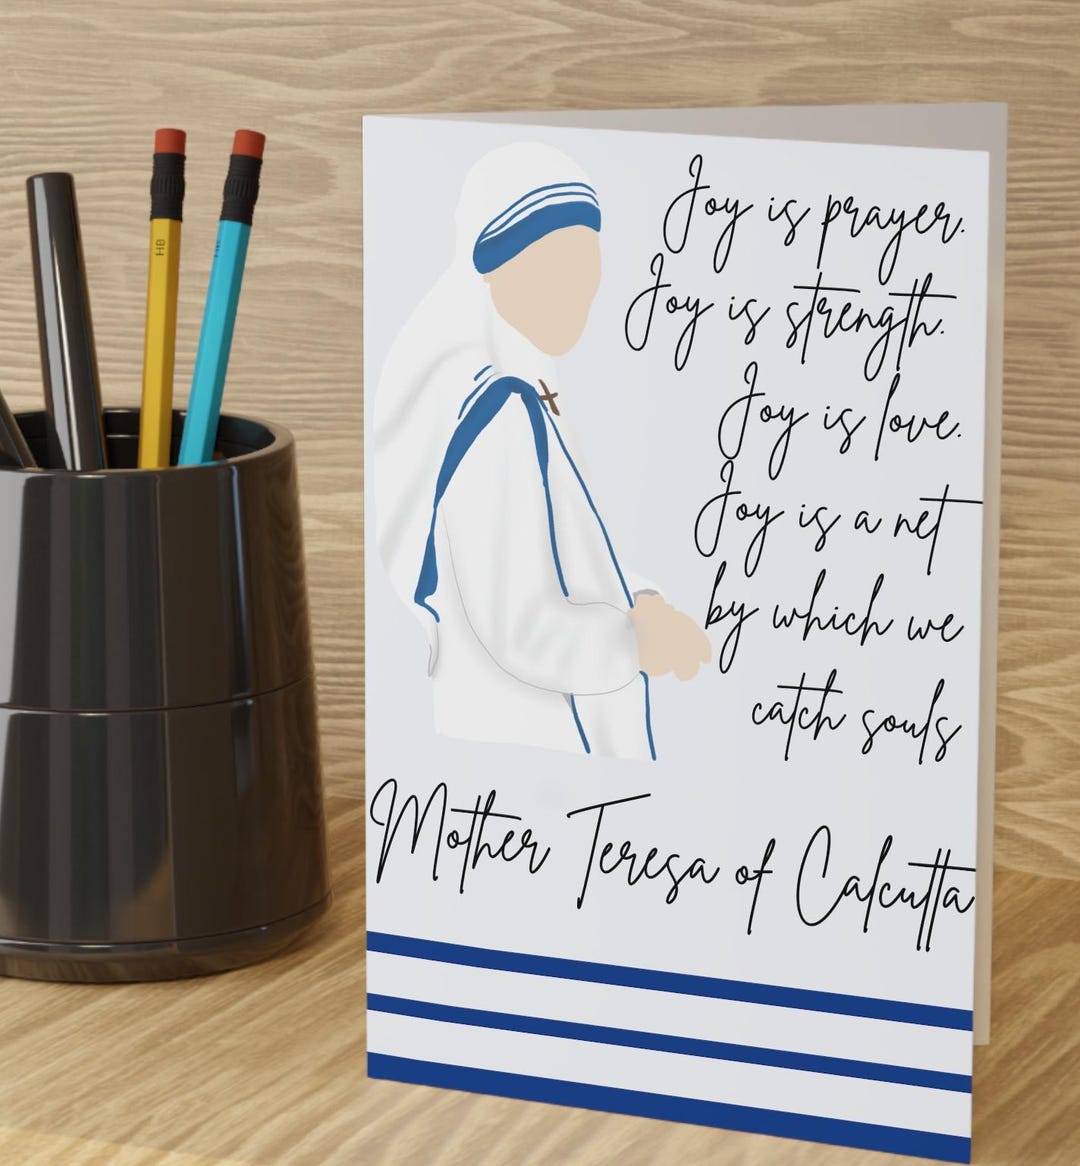 Joy is prayer.
Joy is strength.
Joy is love.
Joy is a net
by which we
catch souls
Mother Teresa of Calcutta
HB